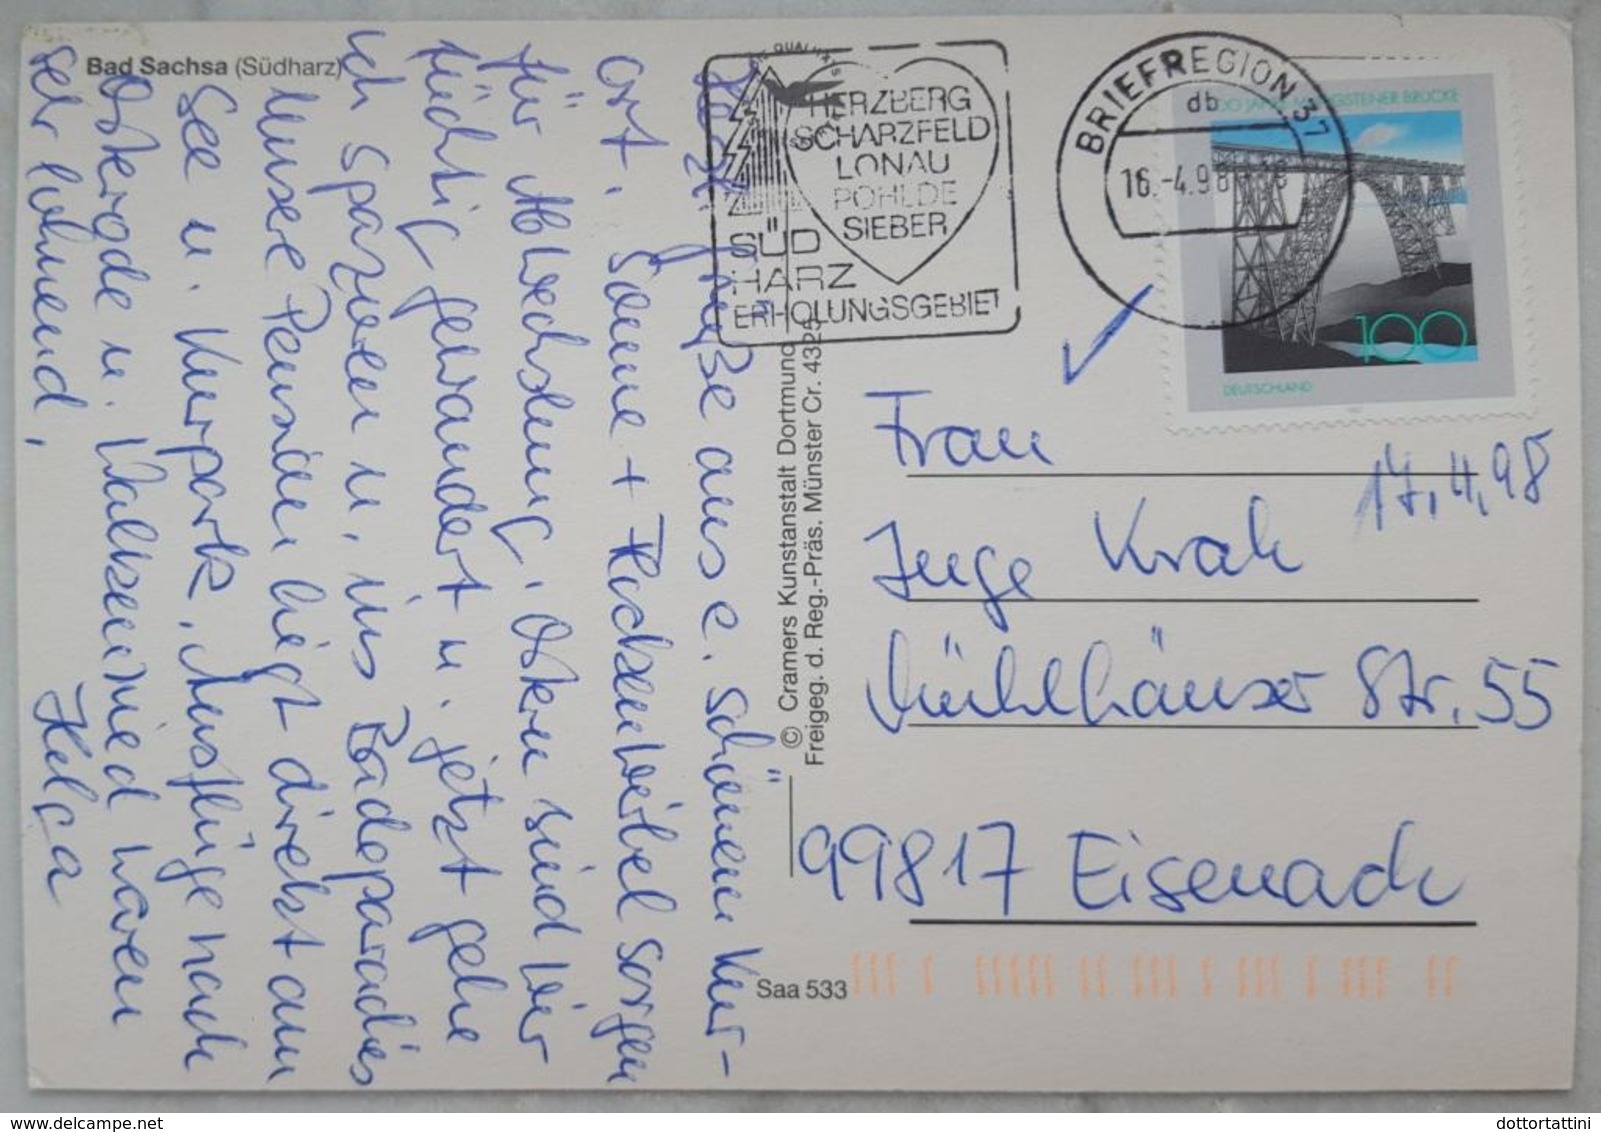 Bad Sachsa (Südharz)
Herzl. Grüße aus e. schönen Kur-
ort. Sonne + Flockenwirbel sorgen
für Abwechslung. Ostern sind wir
tüchtig gewandert u. jetzt gehe
ich spazieren u. ins Badeparadies
Unsere Pension liegt direkt am
See u. Kurpark. Ausflüge nach
Osterode u. Walkenried waren
sehr lohnend.
Helga
© Cramers Kunstanstalt Dortmund
Freigeg. d. Reg.-Präs. Münster Cr. 4325
HERZBERG
SCHARZFELD
LONAU
PÖHLDE
SIEBER
SÜD
HARZ
ERHOLUNGSGEBIET
BRIEFREGION 37
db
16.-4.98
100 JAHRE MÜNGSTENER BRÜCKE
100
DEUTSCHLAND
Frau
17.4.98
Inge Krah
Mühlhäuser Str. 55
99817 Eisenach
Saa 533
dottortattini
delcampe.net